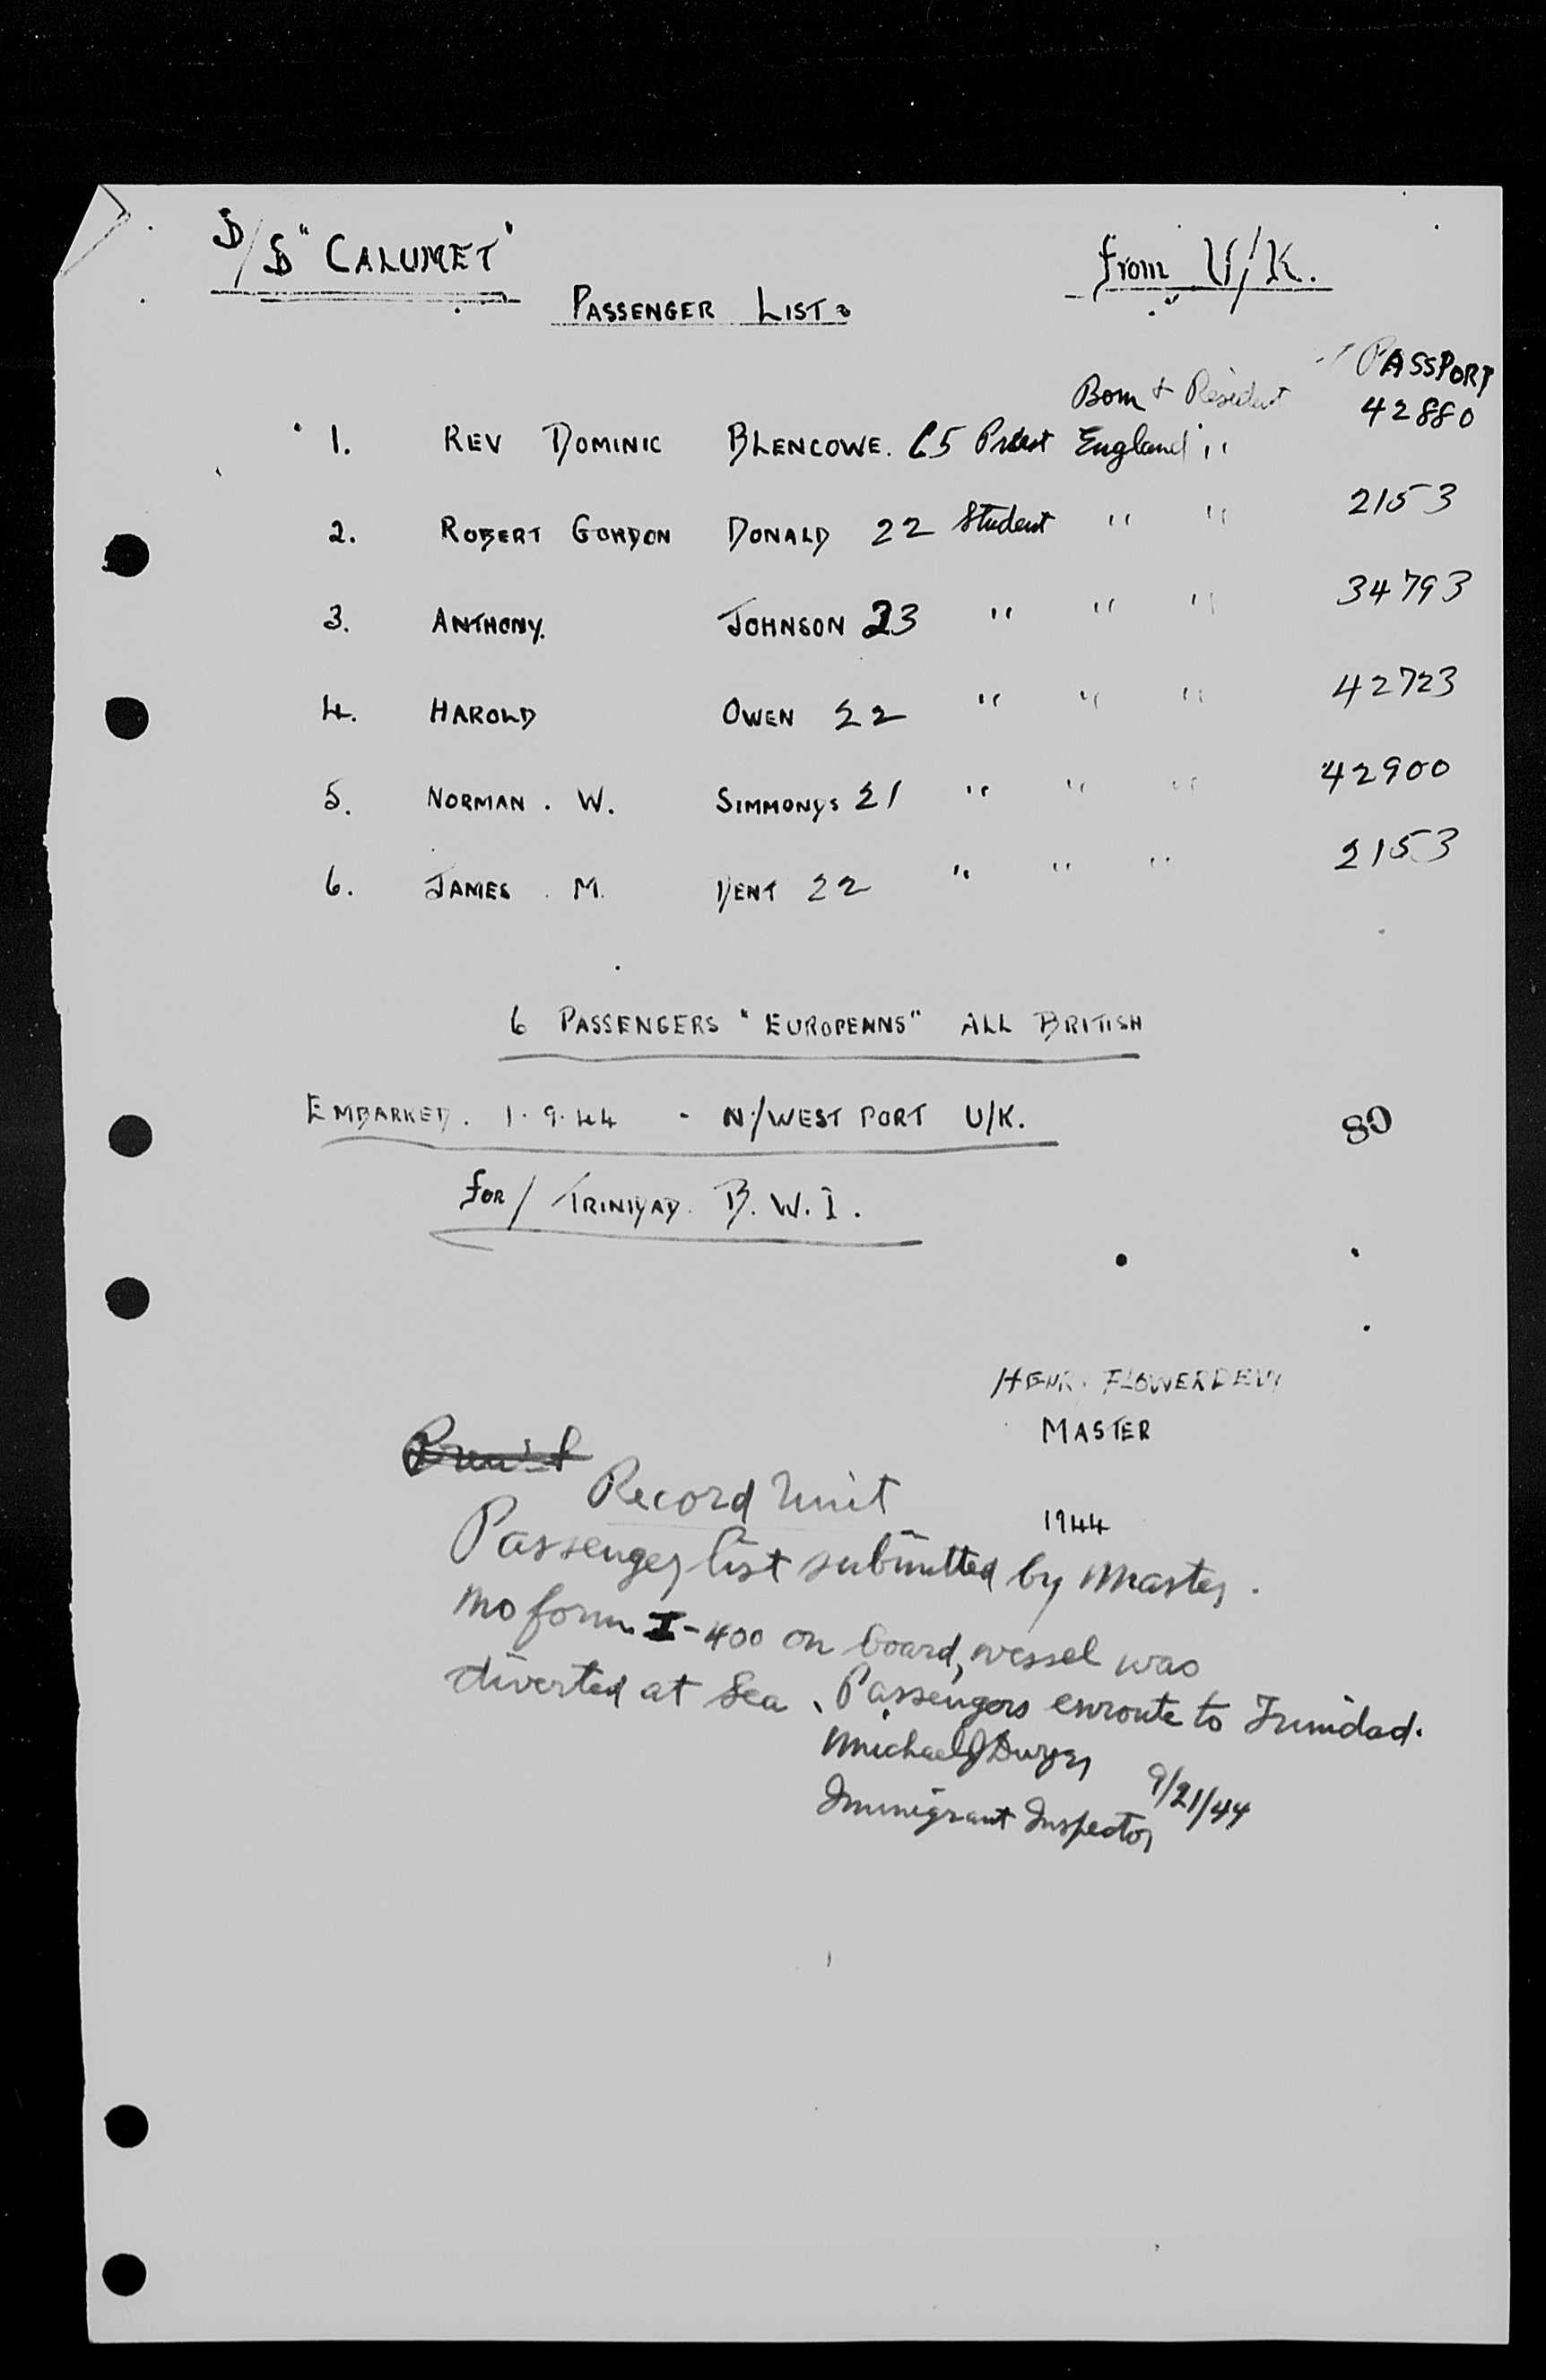 S/S "CALUMET"
from U/K.
PASSENGER LIST
PASSPORT
Born & Resident
1. REV DOMINIC BLENCOWE. 65 Priest England " 42880
2. ROBERT GORDON DONALD 22 Student " " 2153
3. ANTHONY. JOHNSON 23 " " " 34793
4. HAROLD OWEN 22 " " " 42723
5. NORMAN. W. SIMMONDS 21 " " " 42900
6. JAMES. M. DENT 22 " " " 2153
6 PASSENGERS "EUROPEANS" ALL BRITISH
EMBARKED. 1.9.44 - N/WEST PORT U/K.
80
for/ TRINIDAD. B.W.I.
FLOWERDEW
MASTER
Record Unit
1944
Passenger list submitted by Master.
No form I-400 on board, vessel was
diverted at Sea. Passengers enroute to Trinidad.
Michael J Dwyer 9/21/44
Immigrant Inspector